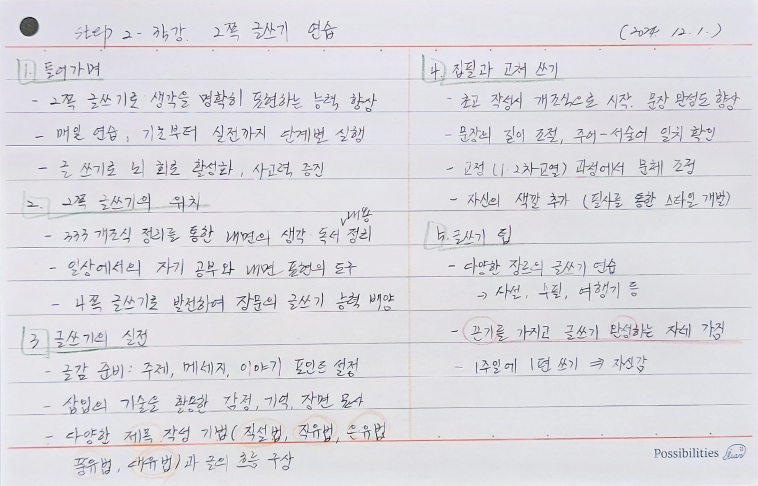 Step 2 - 특강. 2쪽 글쓰기 연습
(2024. 12. 1.)
1. 들어가며
- 2쪽 글쓰기로 생각을 명확히 표현하는 능력 향상
- 매일 연습, 기초부터 실전까지 단계별 실행
- 글 쓰기로 뇌 회로 활성화, 사고력 증진
2. 2쪽 글쓰기의 위치
- 333 개조식 정리를 통한 내면의 생각·독서 내용 정리
- 일상에서의 자기 공부와 내면 표현의 도구
- 4쪽 글쓰기로 발전하여 장문의 글쓰기 능력 배양
3 글쓰기의 실전
- 글감 준비: 주제, 메세지, 이야기 포인트 설정
- 삽입의 기술을 활용한 감정, 기억, 장면 묘사
- 다양한 제목 작성 기법 (직설법, 직유법, 은유법
풍유법, 대유법)과 글의 흐름 구상
4 집필과 고쳐 쓰기
- 초고 작성시 개조식으로 시작, 문장 완성도 향상
- 문장의 길이 조절, 주어-서술어 일치 확인
- 교정 (1·2차교열) 과정에서 문체 조정
- 자신의 색깔 추가 (필사를 통한 스타일 개발)
5. 글쓰기 팁
- 다양한 장르의 글쓰기 연습
→ 사설, 수필, 여행기 등
- 끈기를 가지고 글쓰기 완성하는 자세 가짐
- 1주일에 1편 쓰기 ⇒ 자신감
Possibilities